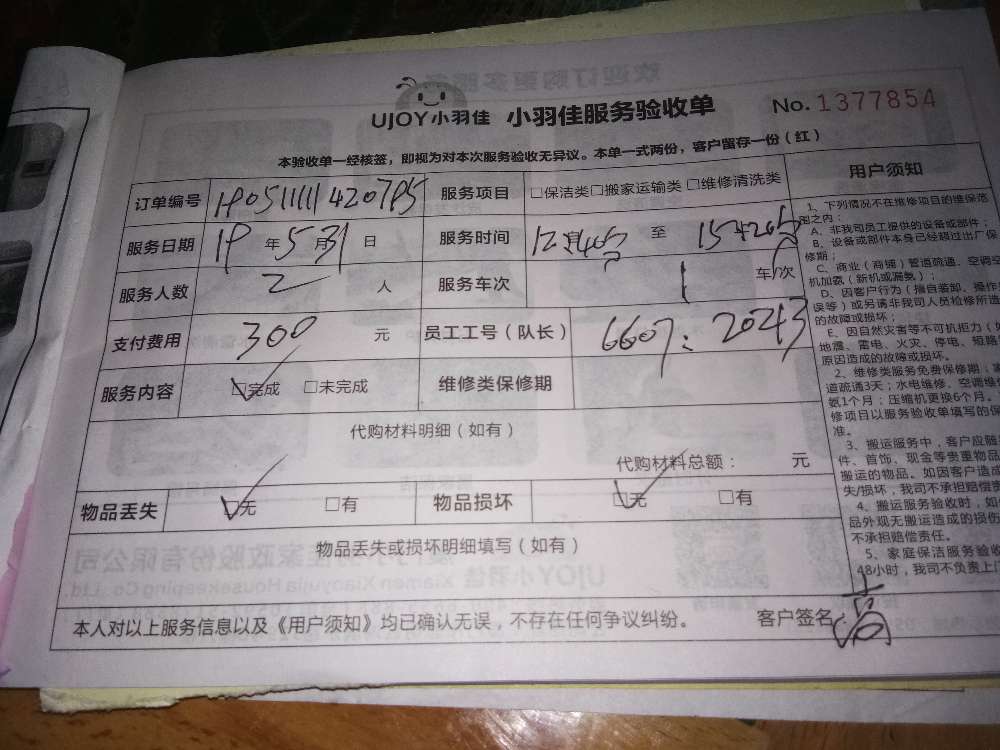 UJOY小羽佳 小羽佳服务验收单 No. 1377854
本验收单一经核签，即视为对本次服务验收无异议。本单一式两份，客户留存一份（红）
订单编号 服务项目 □保洁类□搬家运输类□维修清洗类
服务日期 19年5月31日 服务时间 至
服务人数 2人 服务车次 1车/次
支付费用 300元 员工工号（队长） 6607: 2043
服务内容 □完成 □未完成 维修类保修期
代购材料明细（如有）
代购材料总额： 元
物品丢失 □无 □有 物品损坏 □无 □有
物品丢失或损坏明细填写（如有）
本人对以上服务信息以及《用户须知》均已确认无误，不存在任何争议纠纷。 客户签名：
用户须知
1、下列情况不在维修项目的维保范
围之内：
A、非我司员工提供的设备或部件；
B、设备或部件本身已经超过出厂保
修期；
C、商业（商铺）管道疏通、空调空
机加氨（新机或漏氨）；
D、因客户行为（擅自装卸、操作
误等）或另请非我司人员检修所造
的故障或损坏；
E、因自然灾害等不可抗拒力（如
地震、雷电、火灾、停电、短路
原因造成的故障或损坏。
2、维修类服务免费保修期：
道疏通3天；水电维修、空调维
氨1个月；压缩机更换6个月。
修项目以服务验收单填写的保
准。
3、搬运服务中，客户应
件、首饰、现金等贵重物品
搬运的物品。如因客户造成
失/损坏，我司不承担赔偿责
4、搬运服务验收时，如
品外观无搬运造成的损伤
不承担赔偿责任。
5、家庭保洁服务验收
48小时，我司不负责上门